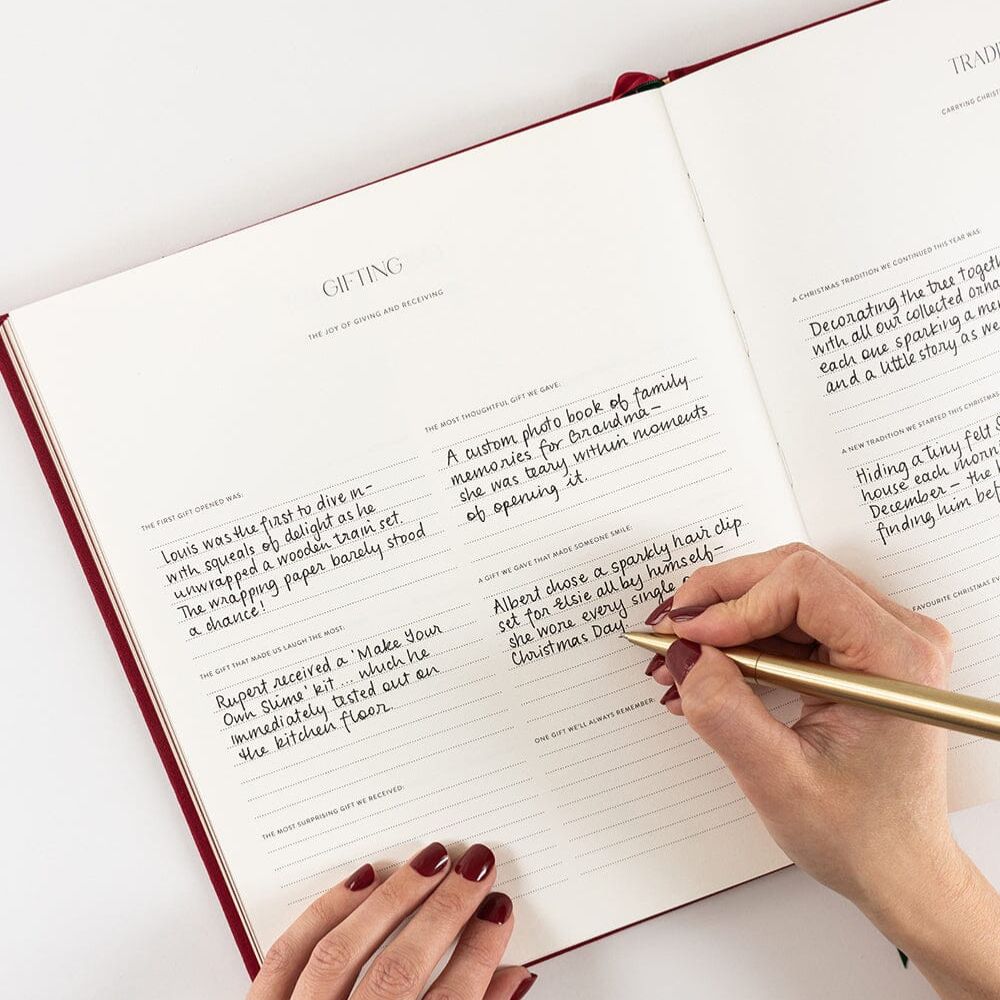 GIFTING
THE JOY OF GIVING AND RECEIVING
THE FIRST GIFT OPENED WAS:
Louis was the first to dive in–
with squeals of delight as he
unwrapped a wooden train set.
The wrapping paper barely stood
a chance!
THE GIFT THAT MADE US LAUGH THE MOST:
Rupert received a 'Make Your
Own Slime' kit ... which he
immediately tested out on
the kitchen floor.
THE MOST SURPRISING GIFT WE RECEIVED:
THE MOST THOUGHTFUL GIFT WE GAVE:
A custom photo book of family
memories for Grandma–
she was teary within moments
of opening it.
A GIFT WE GAVE THAT MADE SOMEONE SMILE:
Albert chose a sparkly hair clip
set for Elsie all by himself–
she wore every single
Christmas Day.
ONE GIFT WE'LL ALWAYS REMEMBER:
CARRYING
A CHRISTMAS TRADITION WE CONTINUED THIS YEAR WAS:
Decorating the tree
with all our collected
each one sparking a
and a little story as we
A NEW TRADITION WE STARTED THIS CHRISTMAS
Hiding a tiny felt
house each
December – the
finding him
FAVOURITE CHRISTMAS